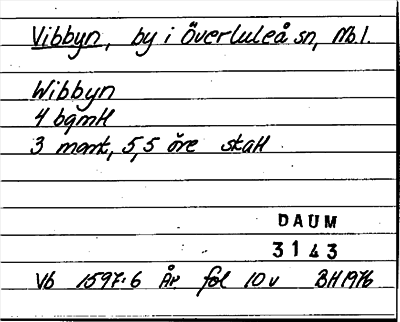 Vibbyn, by i Överluleå sn, Nb.l.
Wibbyn
4 bgmH
3 mark, 5,5 öre skatt
DAUM
3143
Vb 1597:6 År fol 10 v BH 1976